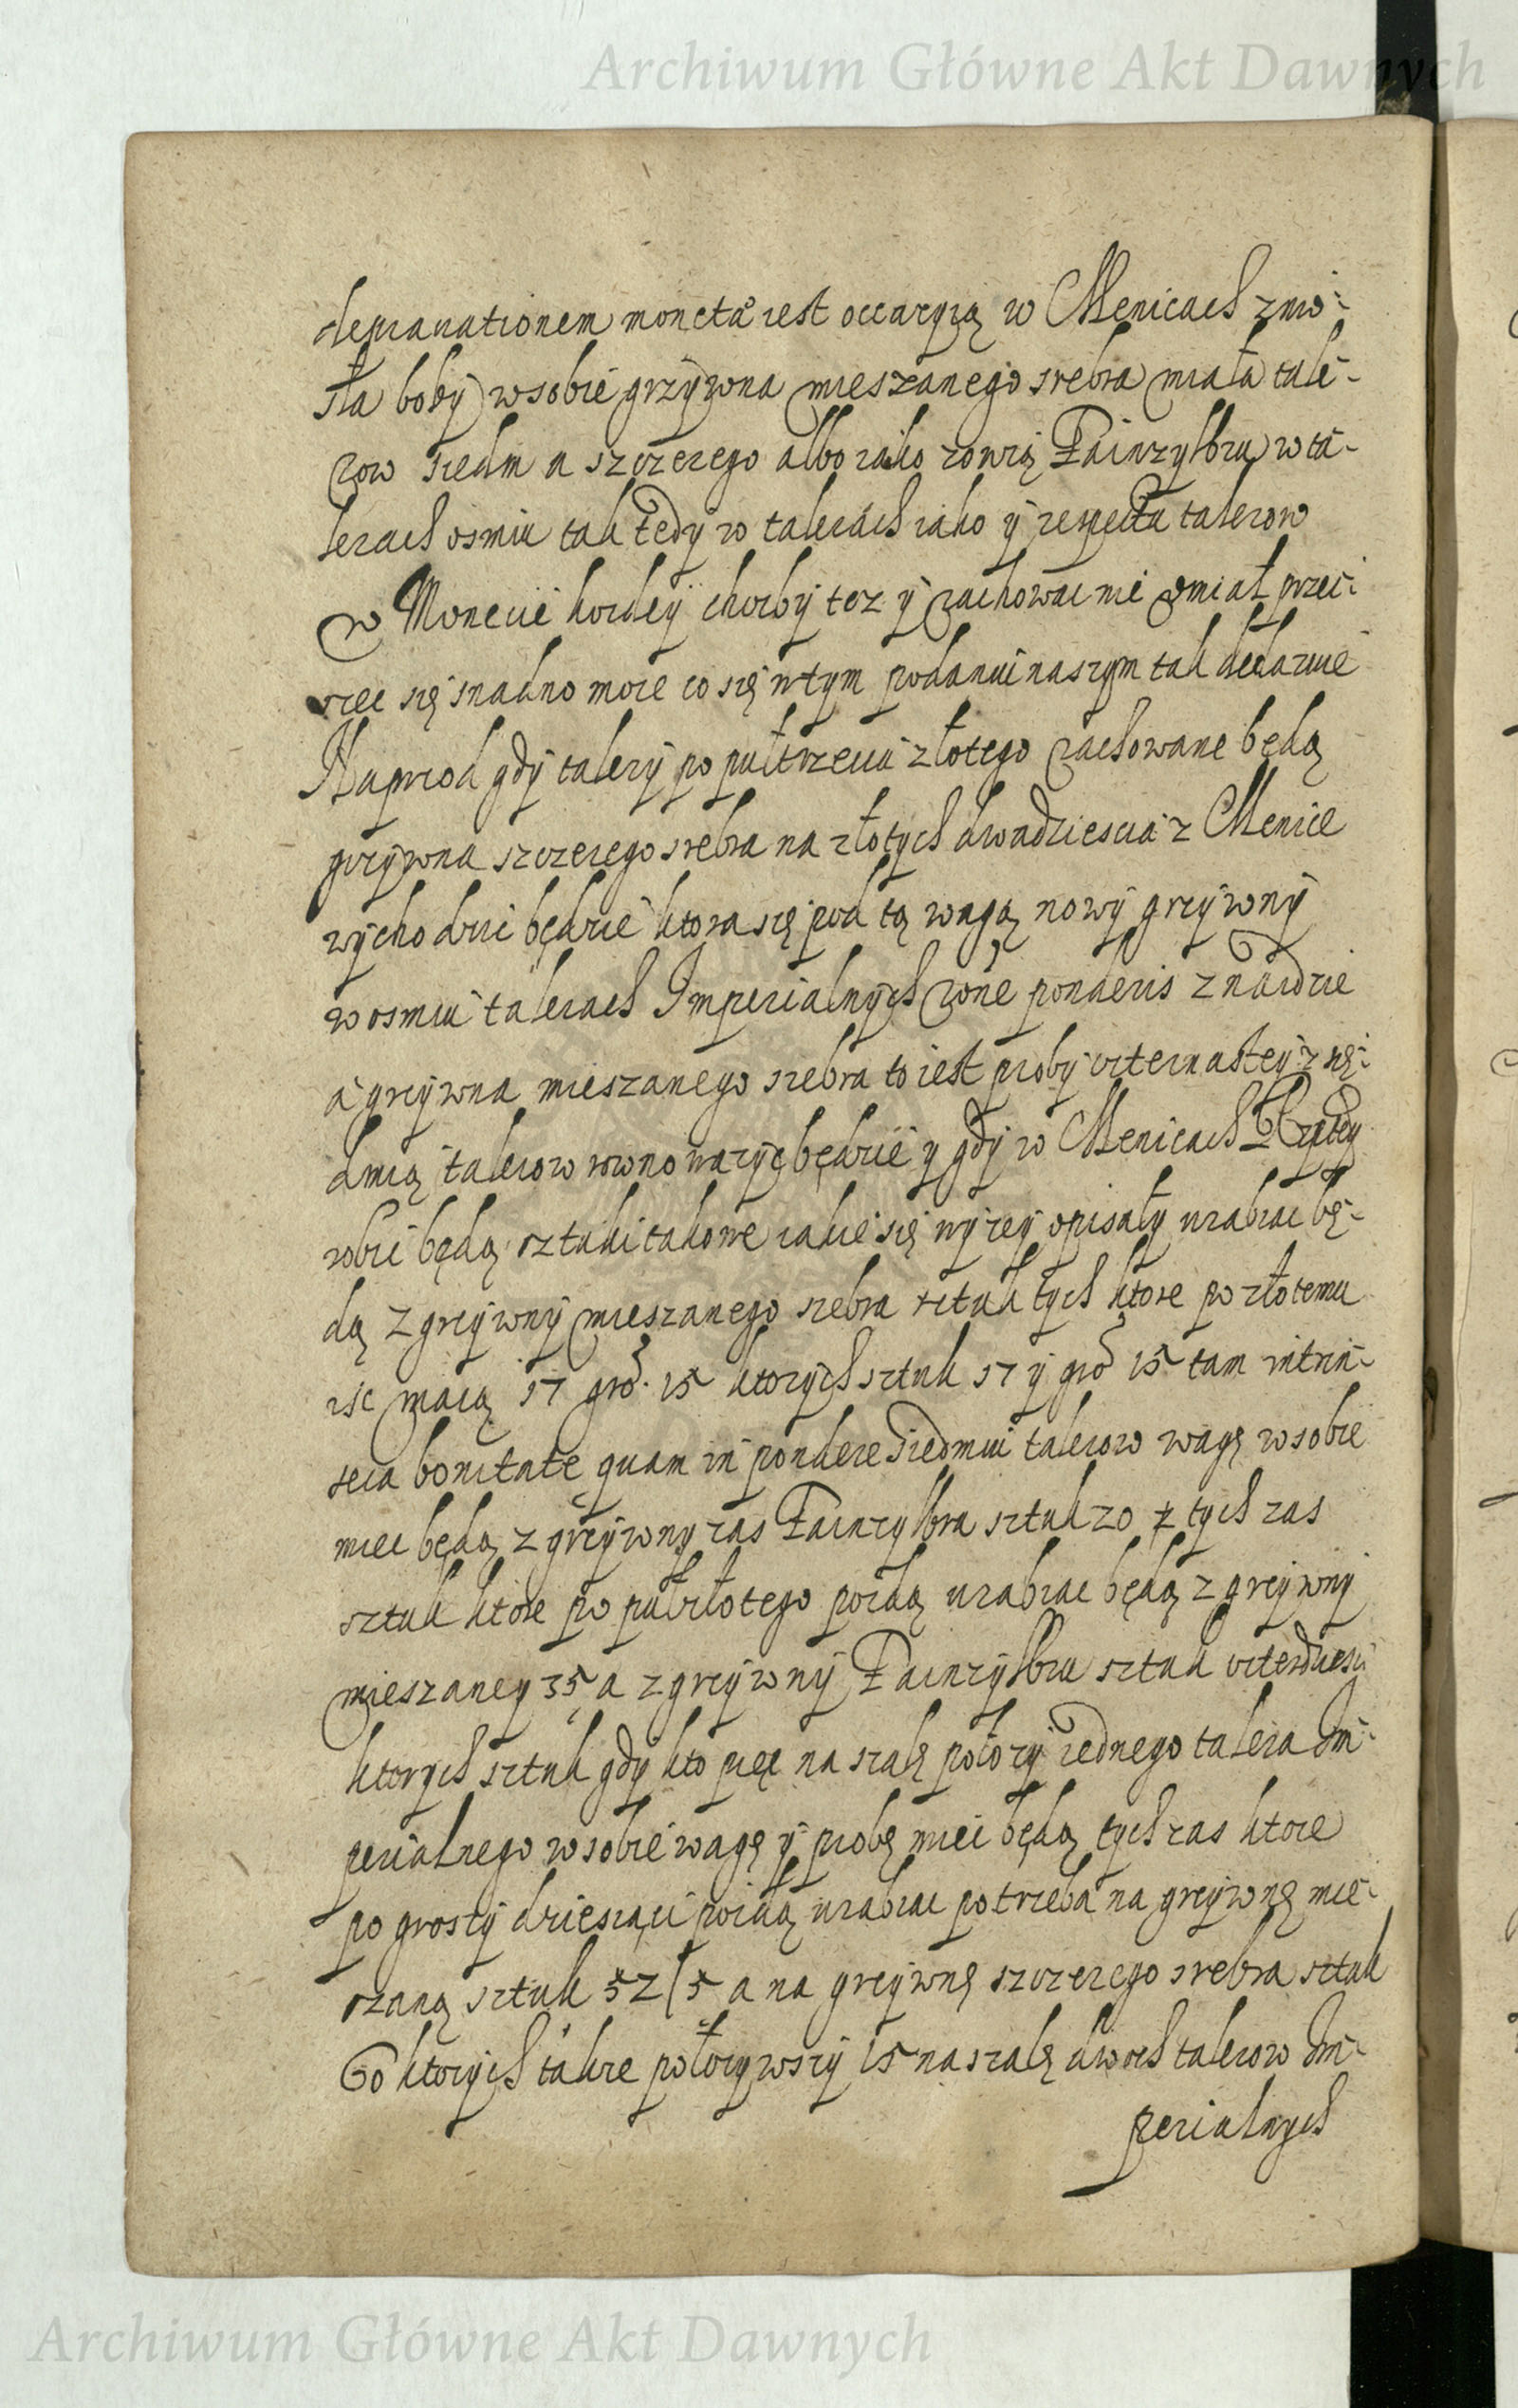 Archiwum Główne Akt Dawnych
deprauationem moneta iest occazyią w Menicach zniо-
sła boby wsobie grzywna mieszanego srebra miała tale-
row siedm a szczerego albo iako zowią Fainzylbru w ta-
lerach osmiu tak tedy w talerach iako y respectu talerow
w Monecie kozdey chocby tez y rachowac nie vmiał przeı-
rzec się snadno moze co się wtym podaniu naszym tak declaruie
Naprzod gdy talery po pułtrzecia złotego rachowane będą
grzywna szczerego srebra na złotych dwadziescia z Menice
wychodzic będzie ktora się pod tą wagą nowy grzywny
w osmiu talerach Imperialnych rone ponderis znaidzie
a grzywna mieszanego srebra to iest proby czternastey z się-
dmią talerow rowno wazyc będzie y gdy w Menicach
robic będą sztuki takowe iakie się wyzey opisały urabiac bę-
dą z grzywny mieszanego srebra sztuk tych ktore po złotemu
isc maią 17 gro. 15 ktorych sztuk 17 y gro 15 tam intrin-
seca bonitate quam in pondere siedmiu talerow wagę wsobie
miec będą z grzywny zas Fainzylbru sztuk 20 z tych zas
sztuk ktore po pułzłotego poidą urabiac będą z grzywny
mieszaney 35 a z grzywny Fainzylbru sztuk czterdziesci
ktorych sztuk gdy kto pięc na szalę połozy iednego talera Im-
perialnego wsobie wagę y probę miec będą tych zas ktore
po groszy dziesiąci poidą urabiac potrzeba na grzywnę mie-
szaną sztuk 52/5 a na grzywnę szczerego srebra sztuk
60 ktorych takze połozywszy 15 na szalę dwoch talerow Im-
perialnych
Archiwum Główne Akt Dawnych